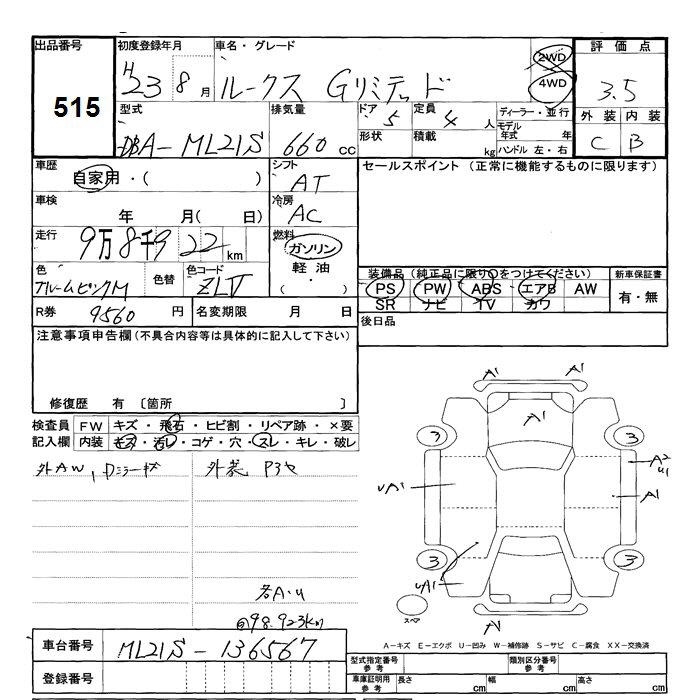 出品番号 初度登録年月 車名・グレード 評価点
515
H23 8月 ルークス Gリミテッド 2WD 4WD 3.5
型式 排気量 ドア 定員 ディーラー・並行 外装 内装
DBA-ML21S 660cc 5 4人 モデル年式 年 C B
形状 積載 kg ハンドル 左・右
車歴 シフト セールスポイント(正常に機能するものに限ります)
自家用・( ) AT
車検 冷房
年 月( 日) AC
走行 燃料
9万8千9 22 km ガソリン
軽油
( ・ )
色 色替 色コード 装備品(純正品に限り○をつけてください) 新車保証書
ブルームピンクM ZLV
PS PW ABS エアB AW 有・無
SR ナビ TV カワ
R券 9560円 名変期限 月 日 後日品
注意事項申告欄(不具合内容等は具体的に記入して下さい)
修復歴 有 〔箇所 〕
検査員 FW キズ・飛石・ヒビ割・リペア跡・×要
記入欄 内装 キズ・汚レ・コゲ・穴・スレ・キレ・破レ
外AW、Dミラーキズ 外装 P3セ
A1 A1
A1
3 3
A2
U1
UA1 A1
3 3
UA1
スペア
A1
各A・U
@98.923km
車台番号 ML21S-136567
A-キズ E-エクボ U-凹み W-補修跡 S-サビ C-腐食 XX-交換済
登録番号
型式指定番号 参考 類別区分番号 参考
車庫証明用 参考 長さ cm 幅 cm 高さ cm